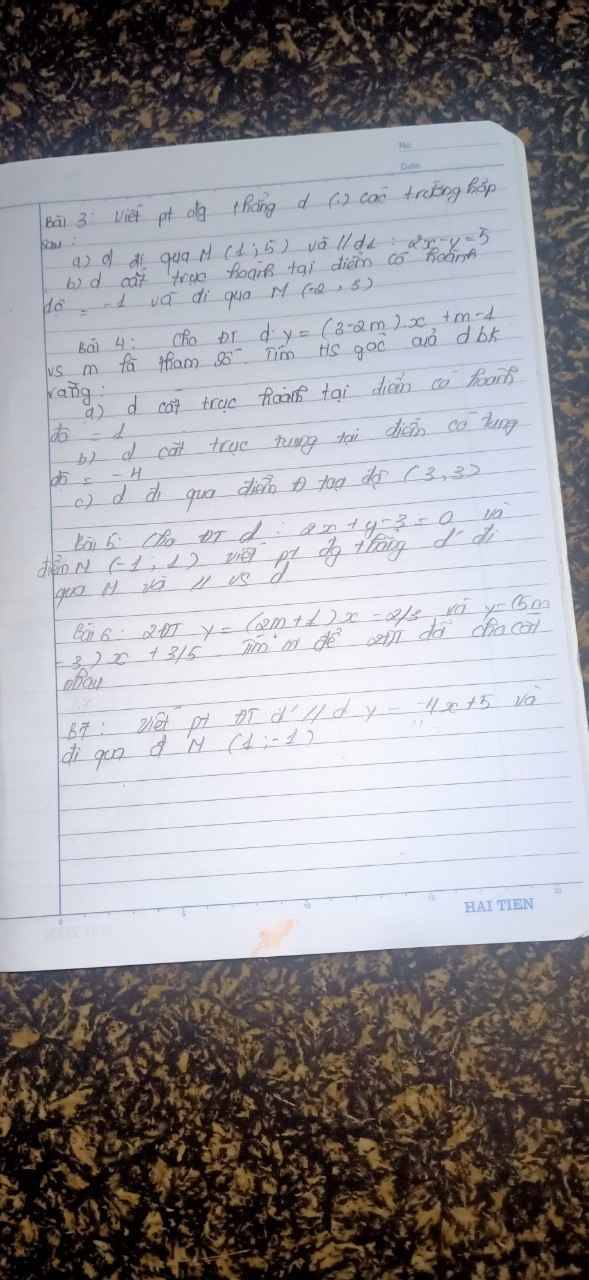 No:
Date:
Bài 3: Viết pt đg thẳng d (.) các trường hợp
sau:
a) d đi qua M (1; 5) và // d1: 2x-y=5
b) d cắt trục hoành tại điểm có hoành
độ = -1 và đi qua M (-2, 3)
Bài 4: Cho ĐT d: y = (3-2m)x + m-1
vs m là tham số. Tìm HS góc của d bk
rằng:
a) d cắt trục hoành tại điểm có hoành
độ = 1
b) d cắt trục tung tại điểm có tung
độ = -4
c) d đi qua điểm tọa độ (3,3)
Bài 5: Cho ĐT d: 2x+y-3=0 và
điểm M (-1, 1) viết pt đg thẳng d' đi
qua M và // vs d
Bài 6: 2ĐT y = (2m+1)x - 2/3 và y=(5m
-3)x + 3/5 Tìm m để 2ĐT đó
nhau
B7: Viết pt ĐT d' // d y = -4x+5 và
đi qua đ M (1;-1)
0 5 10 15 20
HAI TIEN